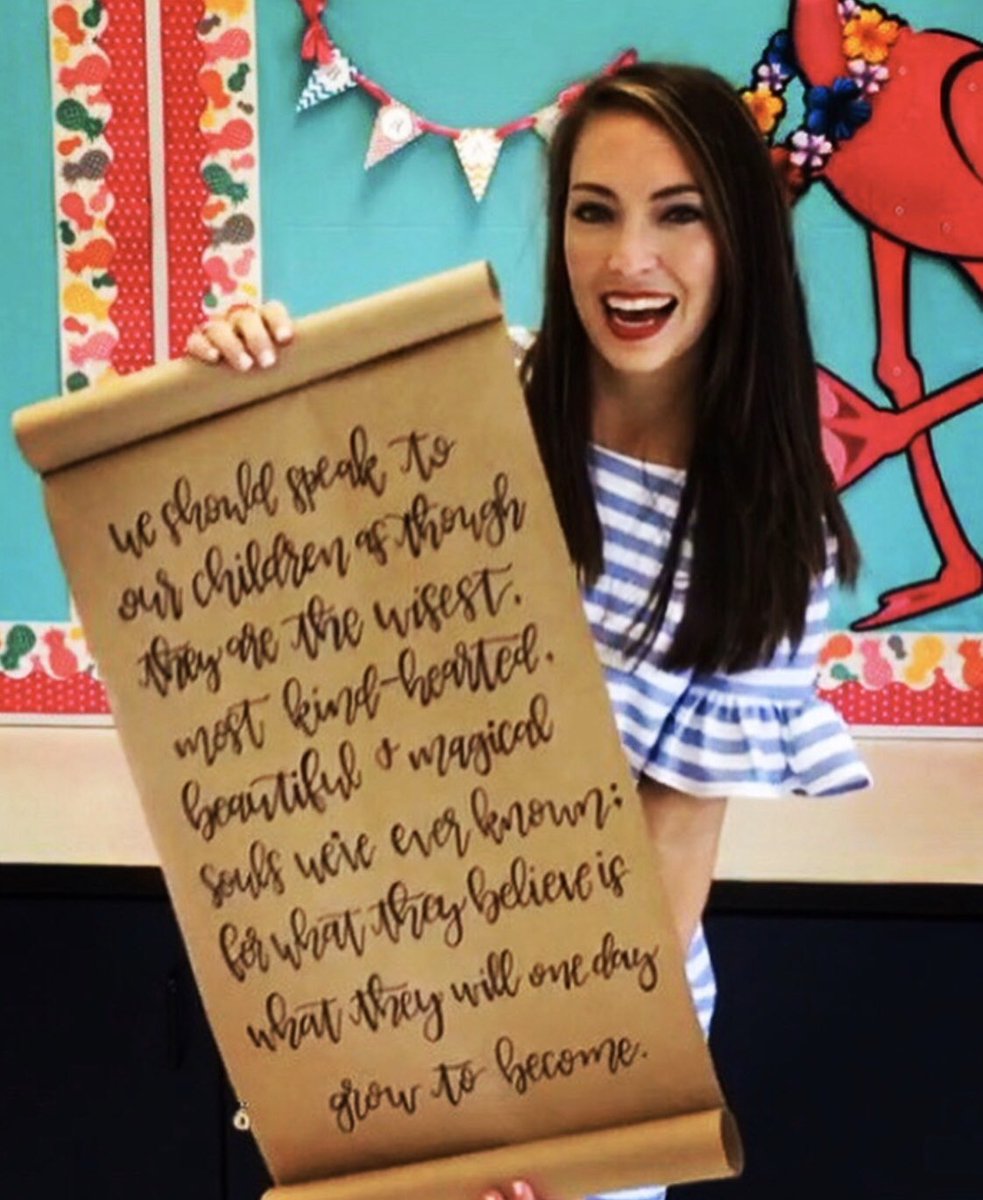 we should speak to
our children as though
they are the wisest,
most kind-hearted,
beautiful & magical
souls we've ever known;
for what they believe is
what they will one day
grow to become.